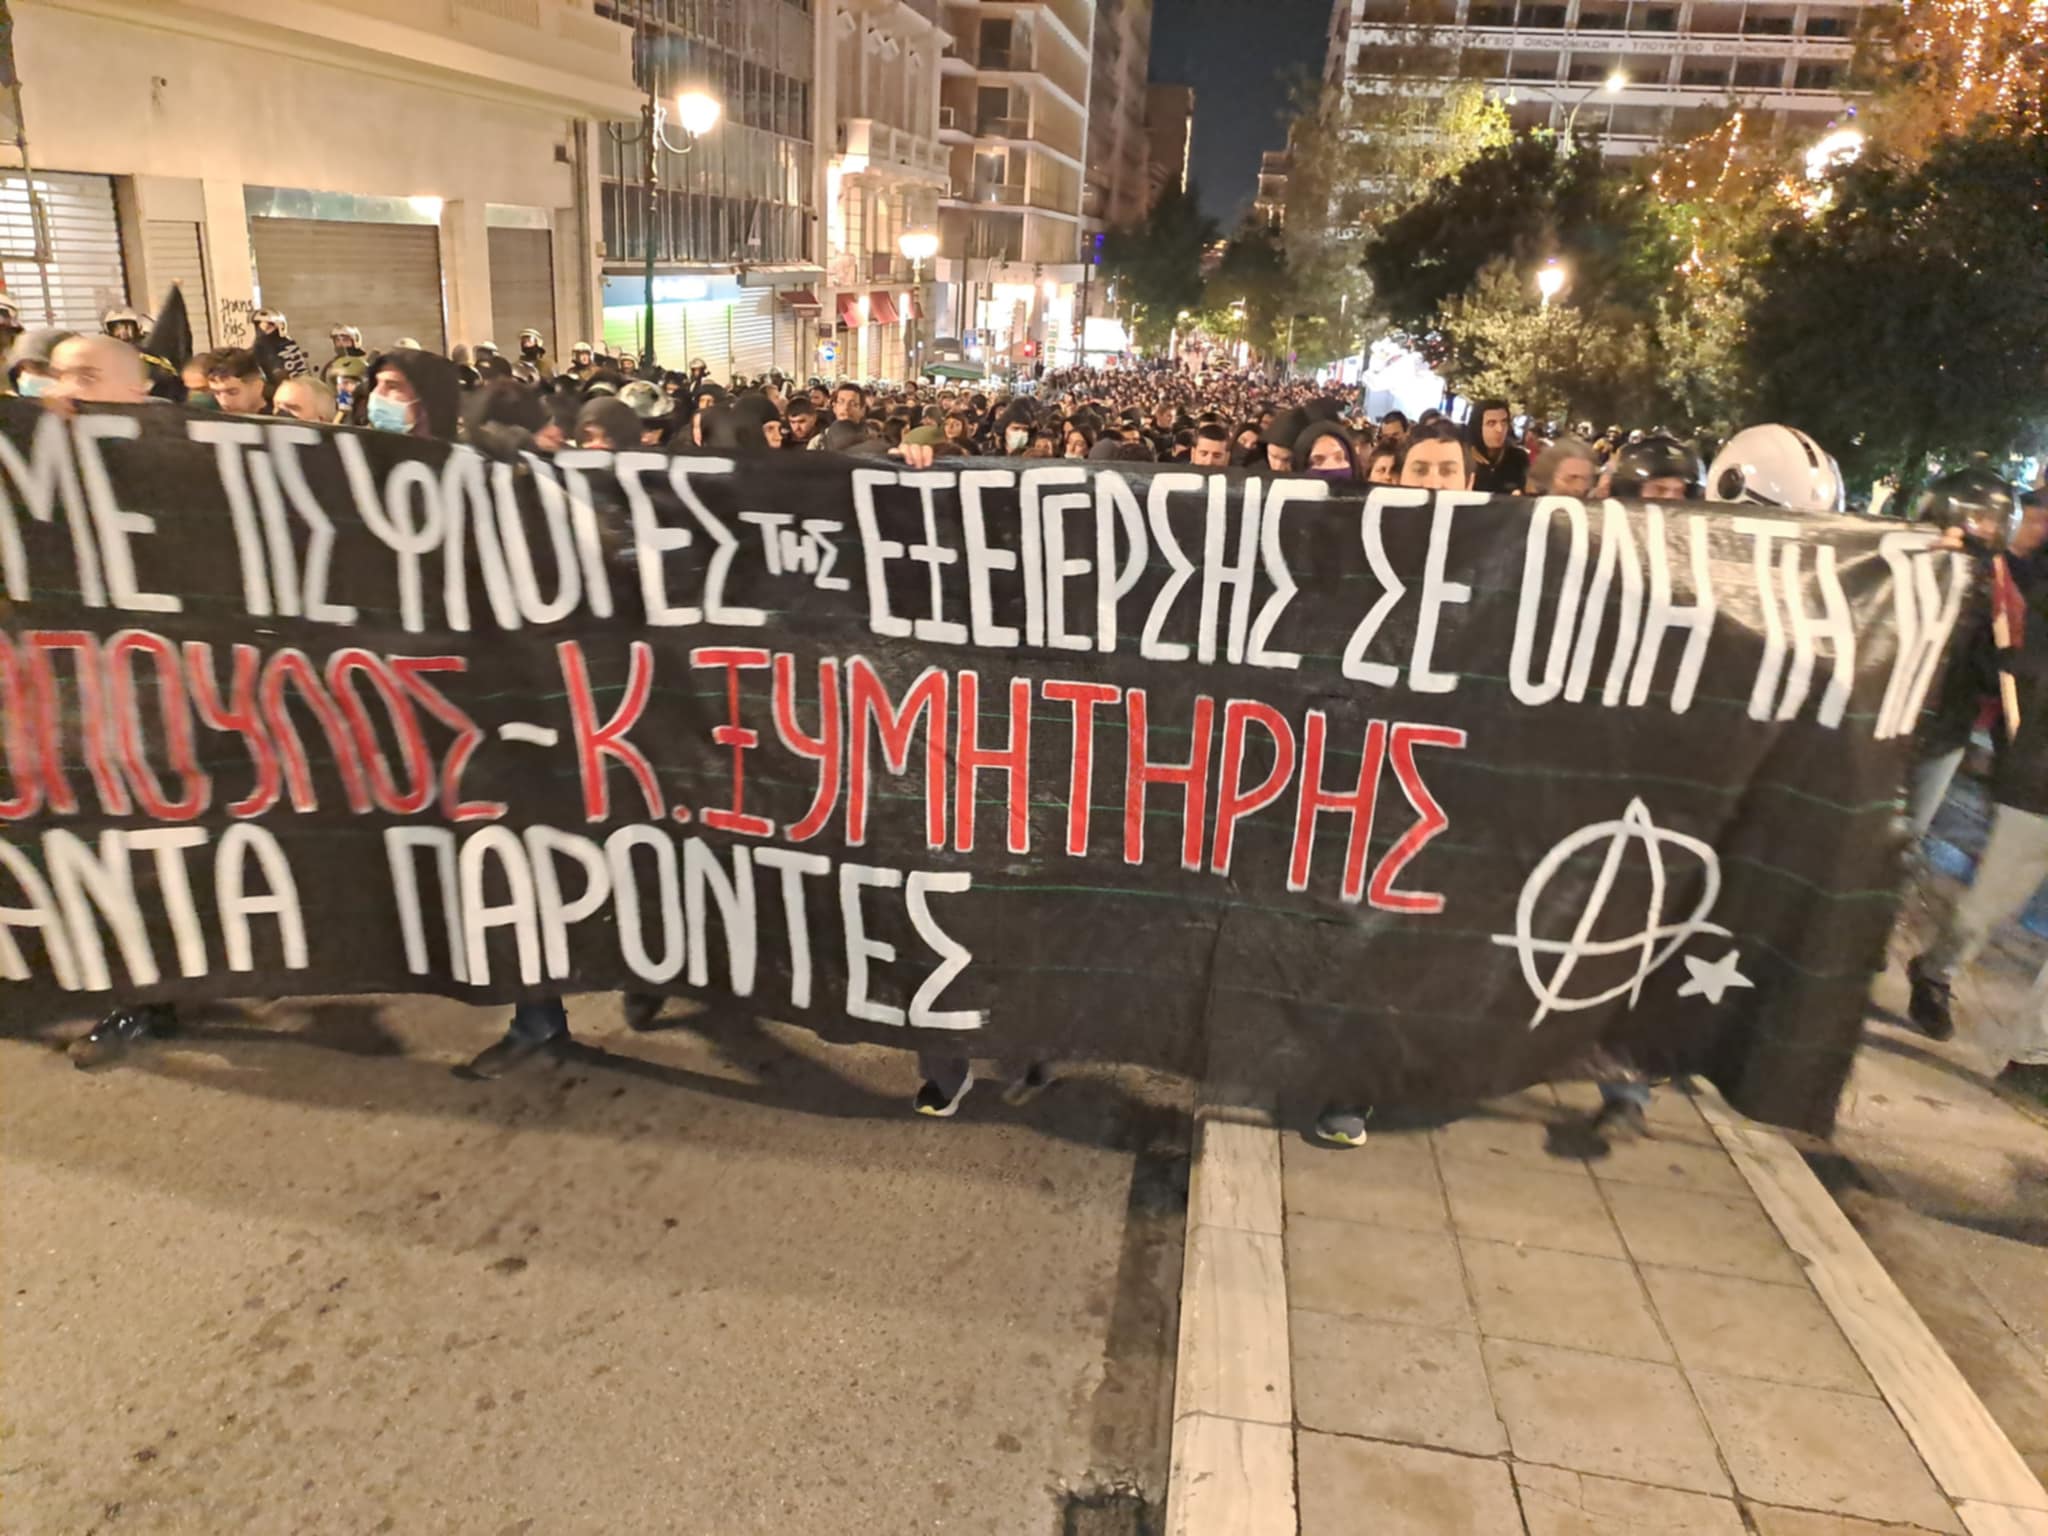 ΟΙΚΟΝΟΜΙΚΩΝ - ΥΠΟΥΡΓΕΙΟ ΟΙΚΟΝΟΜΙΚΩΝ
ΜΕ ΤΙΣ ΦΛΟΓΕΣ ΤΗΣ ΕΞΕΓΕΡΣΗΣ ΣΕ ΟΛΗ ΤΗ ΓΗ
ΟΠΟΥΛΟΣ - Κ. ΞΥΜΗΤΗΡΗΣ
ΑΝΤΑ ΠΑΡΟΝΤΕΣ